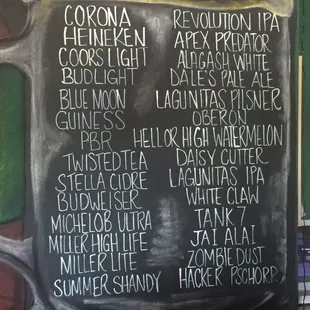 CORONA
HEINEKEN
COORS LIGHT
BUDLIGHT
BLUE MOON
GUINESS
PBR
TWISTED TEA
STELLA CIDRE
BUDWEISER
MICHELOB ULTRA
MILLER HIGH LIFE
MILLER LITE
SUMMER SHANDY
REVOLUTION IPA
APEX PREDATOR
ALAGASH WHITE
DALE'S PALE ALE
LAGUNITAS PILSNER
OBERON
HELL OR HIGH WATERMELON
DAISY CUTTER
LAGUNITAS IPA
WHITE CLAW
TANK 7
JAI ALAI
ZOMBIE DUST
HACKER PSCHORR